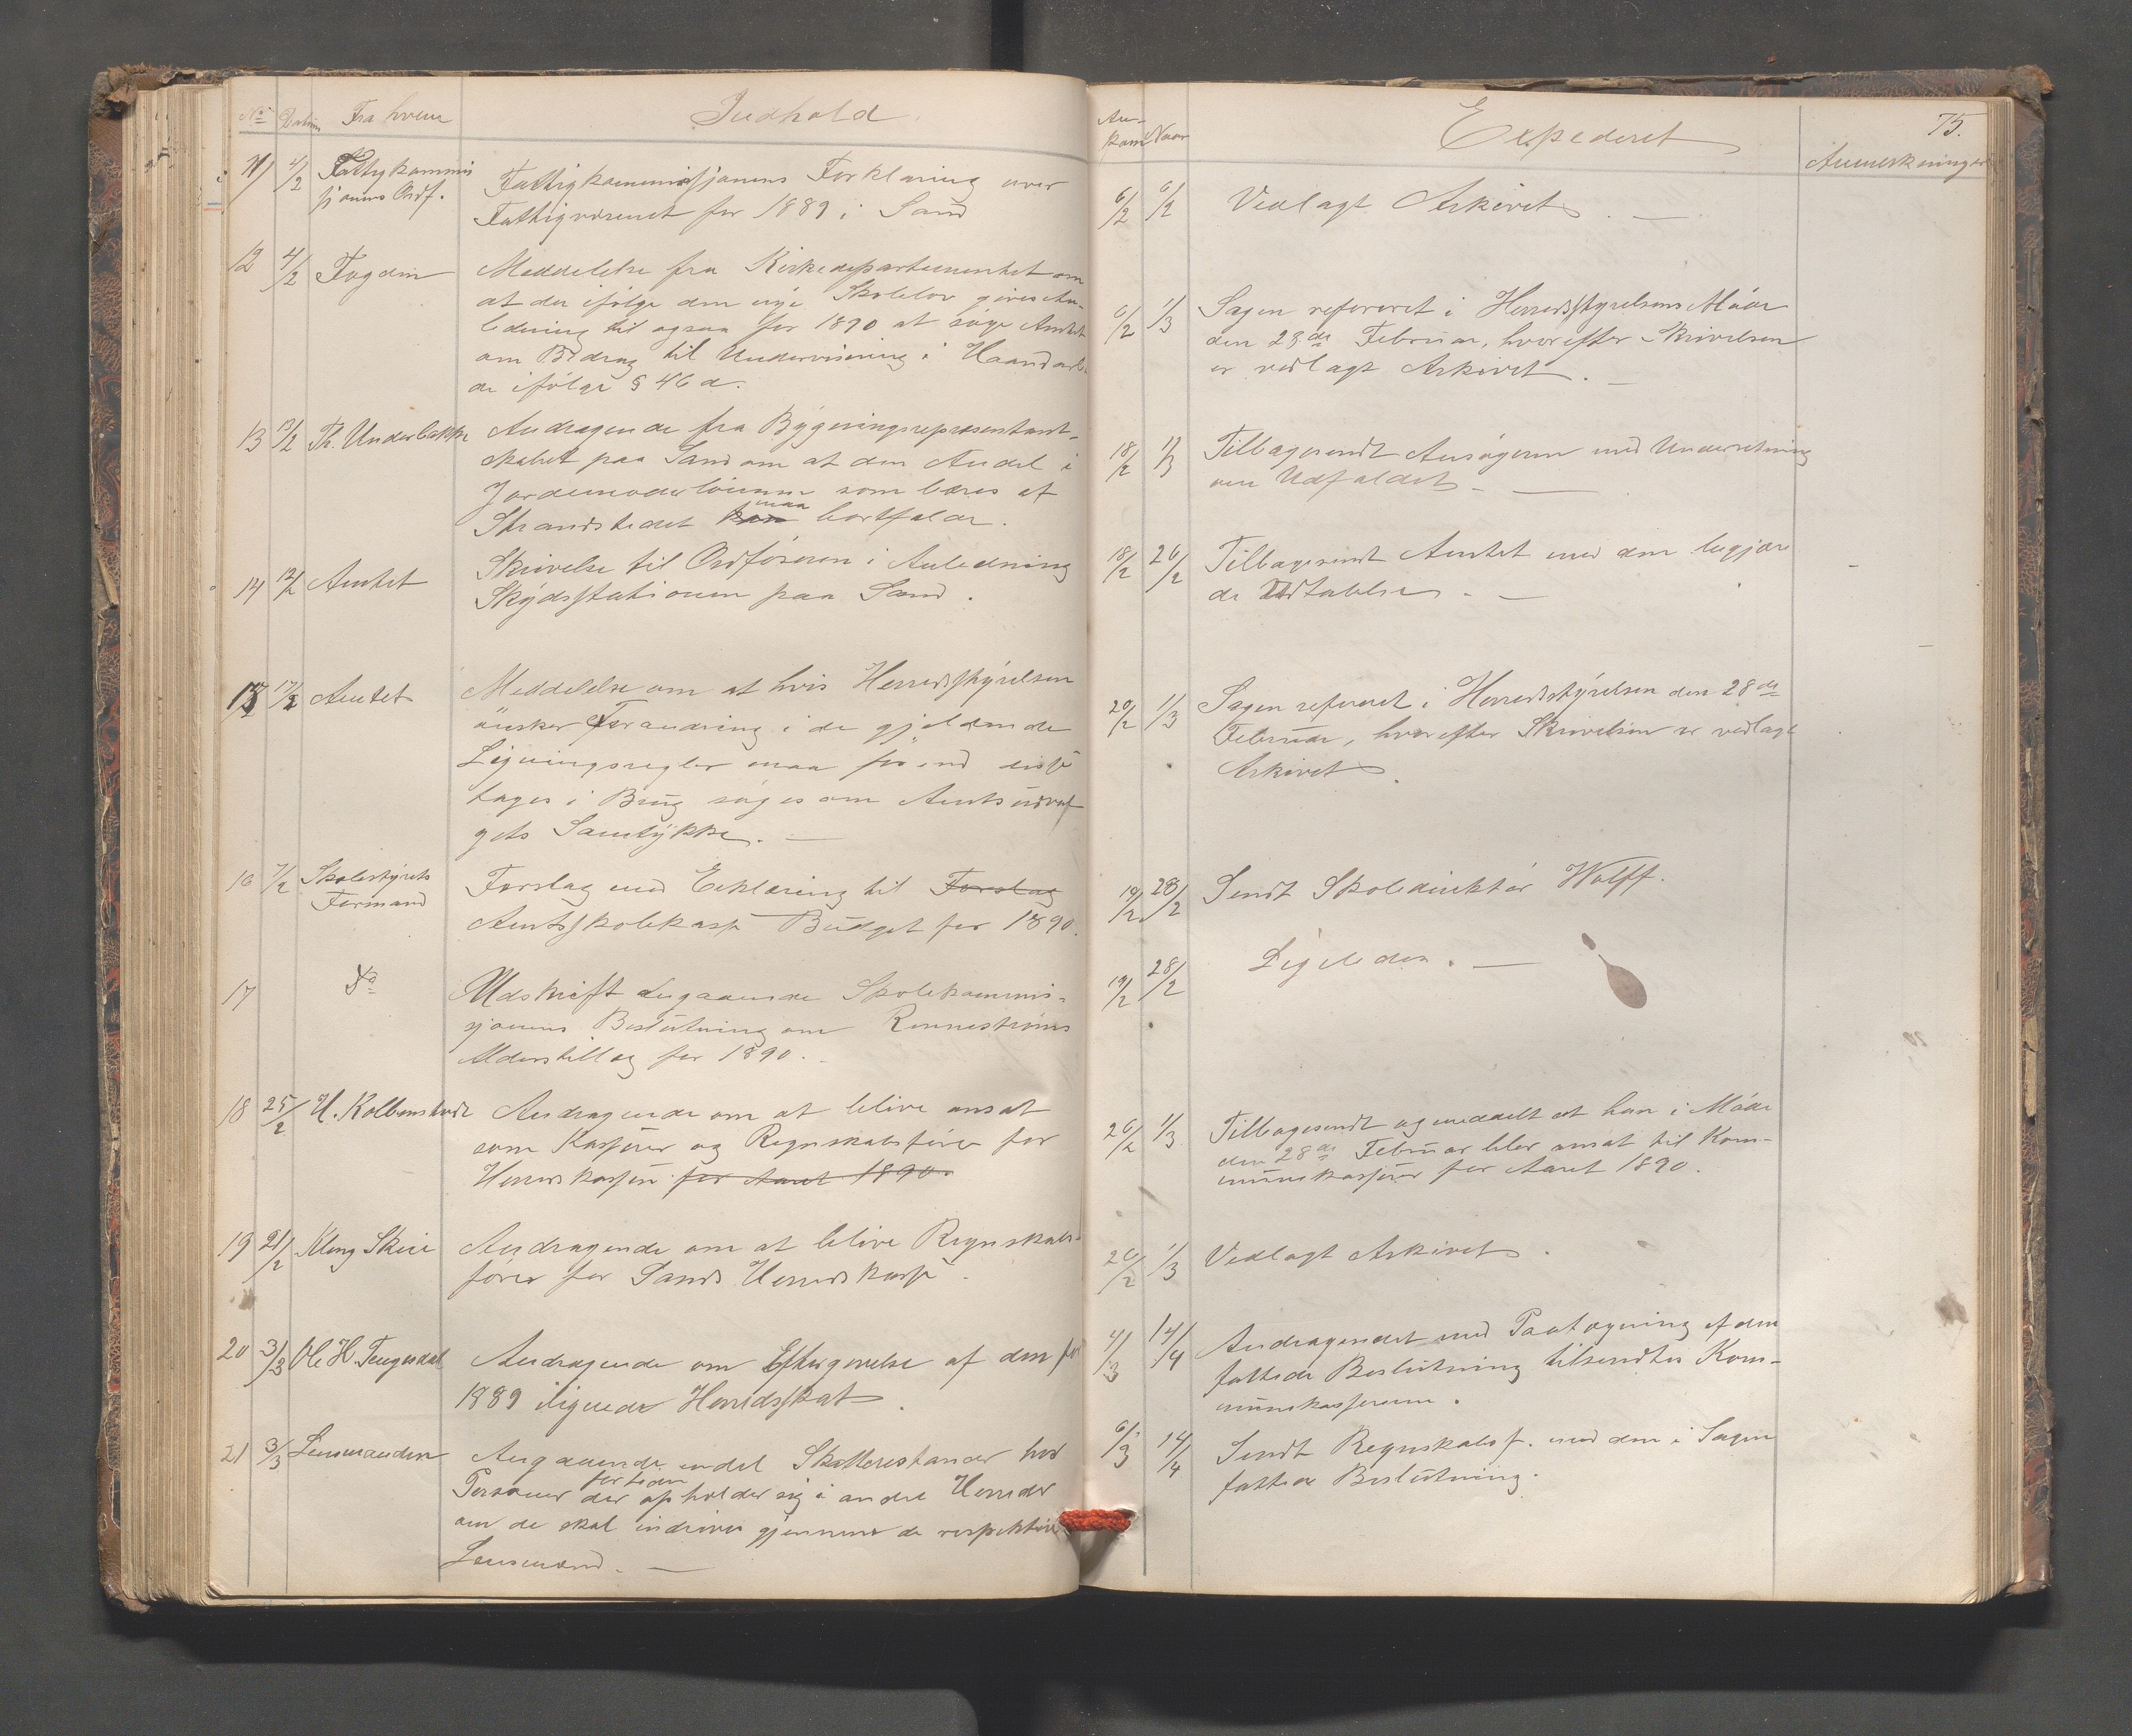 No Datum Fra hvem Indhold
11 4/2 Fattigkommis
sjonens Ordf.
Fattigkommissjonens Forklaring over
Fattigvæsenet for 1889 i Sand
12 4/2 Fogden Meddelelse fra Kirkedepartementet om
at der ifölge den nye Skolelov gives An-
ledning til ogsaa for 1890 at söge Amtet
om Bidrag til Undervisning i Haandarbei
de ifölge § 46 d.
13 13/2 Th. Underbakke Andragende fra Bygningsrepræsentant-
skabet paa Sand om at den Andel i
Jordemoderlönnen som bæres af
Strandstedet kan maa bortfalde.
14 12/2 Amtet Skrivelse til Ordföreren i Anledning
Skydsstationen paa Sand.
15 17/2 Amtet Meddelelse om at hvis Herredsstyrelsen
önsker Forandring i de gjeldende
Ligningsregler maa för end disse
tages i Brug söges om Amtsudval
gets Samtykke. —
16 7/2 Skolestyrets
Formand
Forslag med Erklæring til Forslag
Amtsskolekasse Budget for 1890.
17 Do Udskrift angaaende Skolekommis-
sjonens Beslutning om Rennestrøms
Alderstillæg for 1890.
18 25/2 H. Kolbenstvedt Andragende om at blive ansat
som Kasserer og Regnskabsförer for
Herredskassen for Aaret 1890.
19 21/2 Kleng Skeie Andragende om at blive Regnskabs-
förer for Sands Herredskasse.
20 3/3 Ole H. Tengesdal Andragende om Eftergivelse af den for
1889 ilignede Herredsskat.
21 3/3 Lensmanden Angaaende endel Skatterestander hos
Personer der for tiden opholder sig i andre Herreder
om de skal inddrives gjennem de respektive
Lensmænd. —
An-
kom Naar Expederet 75.
Anmerkninger
6/2 6/2 Vedlagt Arkivet. —
6/2 1/3 Sagen refereret i Herredsstyrelsens Möde
den 28de Februar, hvorefter Skrivelsen
er vedlagt Arkivet. —
18/2 1/3 Tilbagesendt Ansögeren med Underretning
om Udfaldet. —
18/2 26/2 Tilbagesendt Amtet med den begjær
de Udtalelse. —
20/2 1/3 Sagen refereret i Herredsstyrelsen den 28de
Februar, hvorefter Skrivelsen er vedlagt
Arkivet.
19/2 28/2 Sendt Skoledirektör Wolff.
19/2 28/2 Ligeledes. —
26/2 1/3 Tilbagesendt og meddelt at han i Möde
den 28de Februar blev ansat til Kom-
munekasserer for Aaret 1890.
26/2 1/3 Vedlagt Arkivet.
4/3 14/4 Andragendet med Paategning af den
fattede Beslutning tilsendtes Kom-
munekassereren.
6/3 14/4 Sendt Regnskabsf. med den i Sagen
fattede Beslutning.